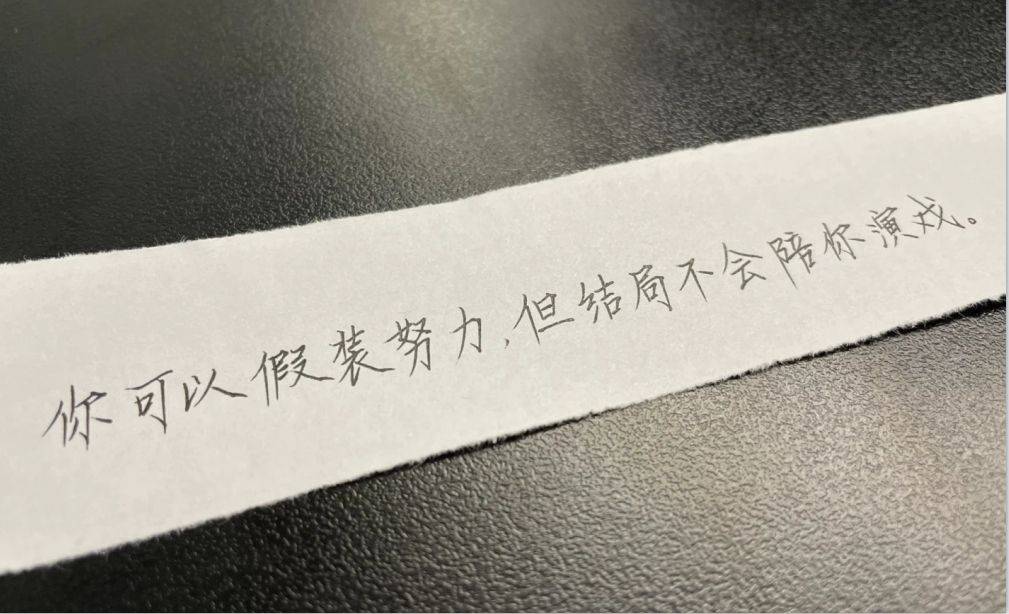 你可以假装努力,但结局不会陪你演戏。